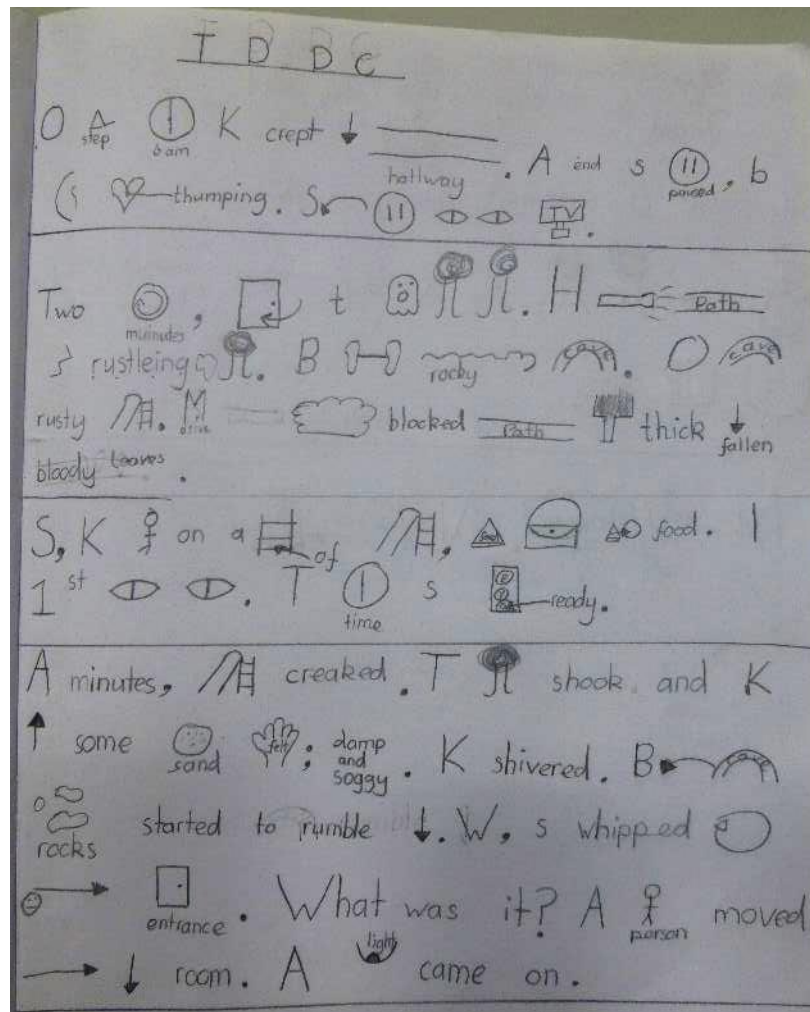 T D D C
O step 6am K crept hallway. A end s paused, b
(s thumping. S TV.
Two muinutes, t H Path
rustleing. B rocky cave. O cave
rusty M blocked Path thick fallen
bloody leaves.
S, K on a of, food. I
1st. T time s ready.
A minutes, creaked. T shook and K
some sand felt; damp and soggy. K shivered. B cave
rocks started to rumble. W, s whipped
entrance. What was it? A person moved
room. A light came on.